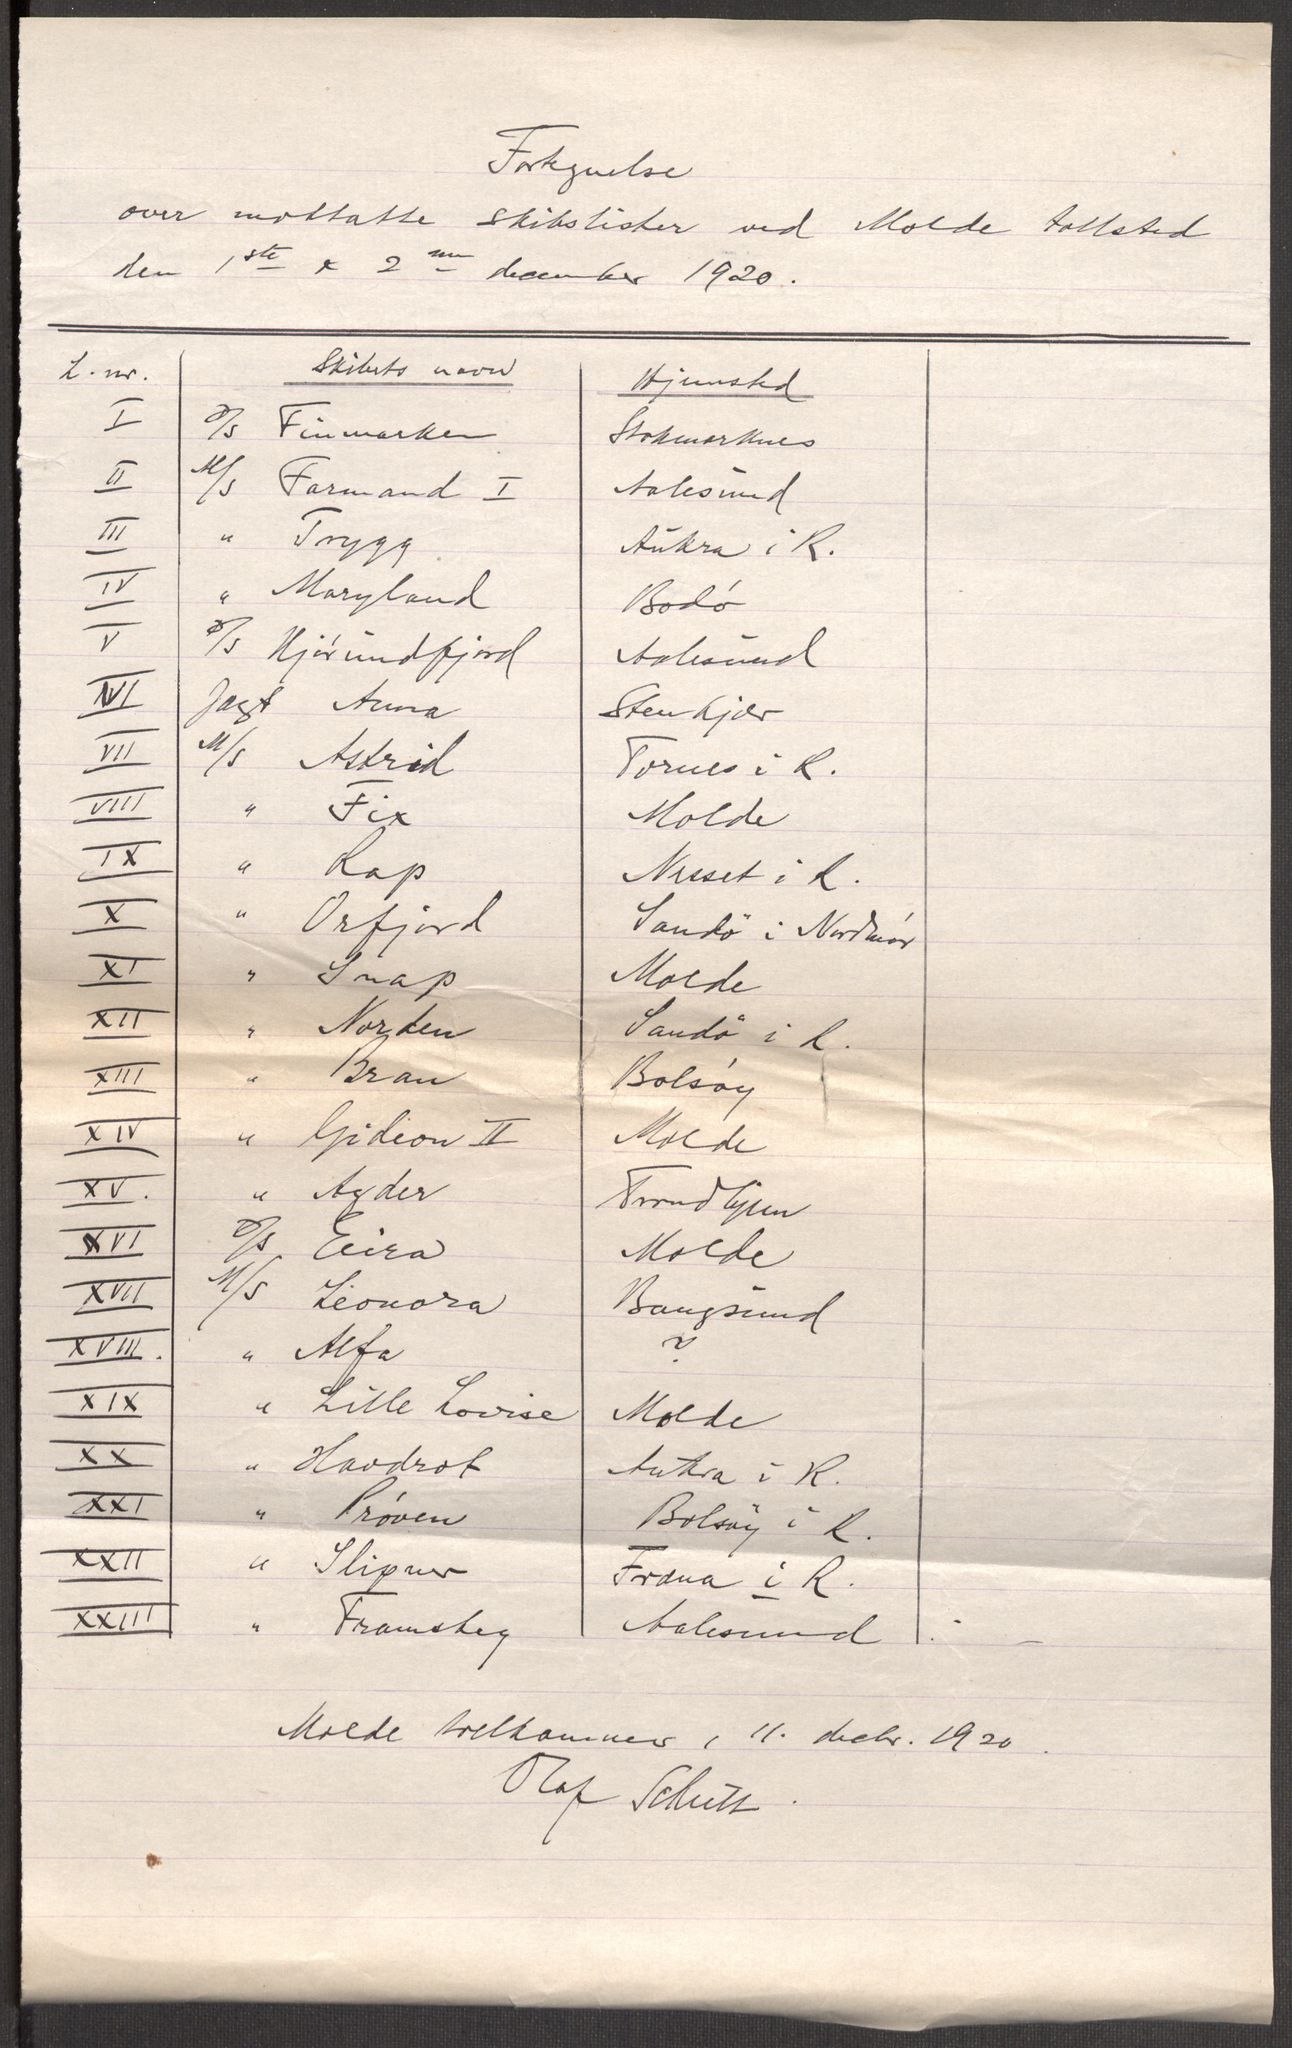 Fortegnelse
over mottatte skibslister ved Molde tollsted
den 1ste & 2nen december 1920.
L. nr. Skibets navn Hjemsted
I D/S Finmarken Stokmarknes
II M/S Farmand I Aalesund
III " Trygg Aukra i R.
IV " Maryland Bodó
V D/S Hjórundfjord Aalesund
VI Jagt Anna Stenkjær
VII M/S Astrid Tornes i R.
VIII " Fix Molde
IX " Rap Nesset i R.
X " Orfjord Sandö i Nordmör
XI " Snap Molde
XII " Norden Sandö i R.
XIII " Bran Bolsóy
XIV " Gideon II Molde
XV. " Agder Trondhjem
XVI D/S Eira Molde
XVII M/S Leonora Bangsund
XVIII. " Alfa ?
XIX " Lille Lovise Molde
XX " Havdrot Aukra i R.
XXI " Prøven Bolsöy i R.
XXII " Slipner Fræna i R.
XXIII " Framsteg Aalesund
Molde tolkammer, 11. decbr. 1920.
Olaf Schütt.